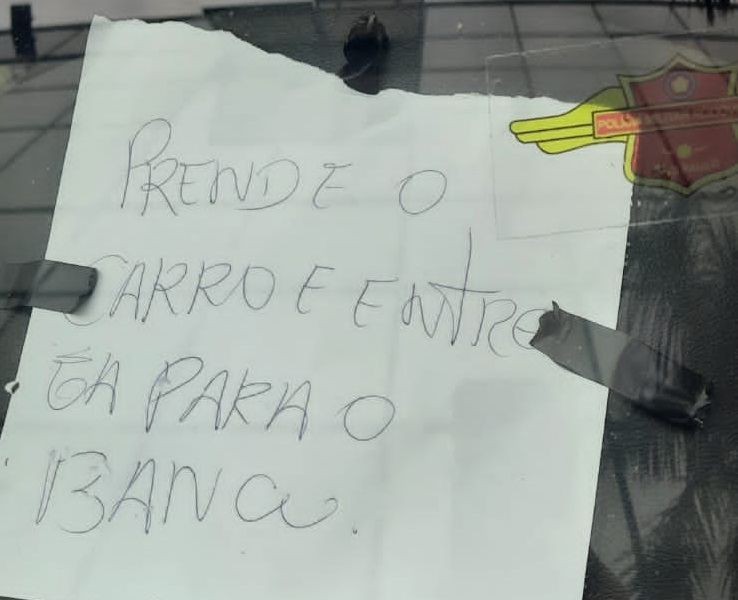 PRENDE O
CARRO E ENTRE
GA PARA O
BANCO.